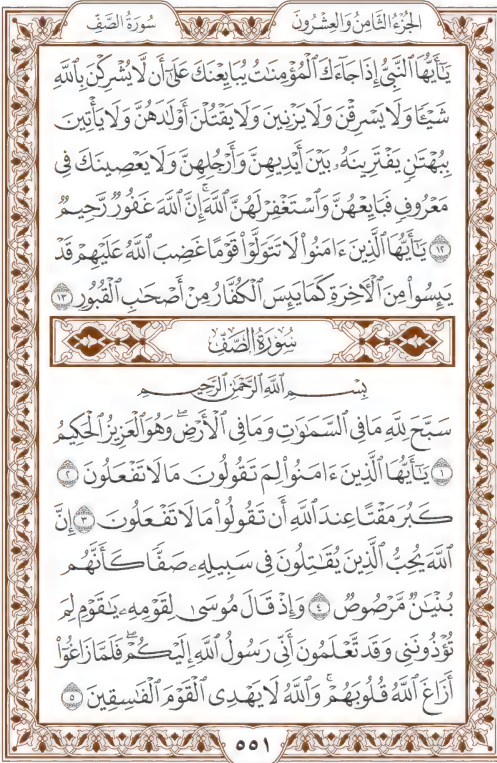 الجُزْءُ الثَّامِنُ وَالعِشْرُونَ
سُورَةُ الصَّفِّ
يَٰٓأَيُّهَا ٱلنَّبِيُّ إِذَا جَآءَكَ ٱلْمُؤْمِنَٰتُ يُبَايِعْنَكَ عَلَىٰٓ أَن لَّا يُشْرِكْنَ بِٱللَّهِ
شَيْـًٔا وَلَا يَسْرِقْنَ وَلَا يَزْنِينَ وَلَا يَقْتُلْنَ أَوْلَٰدَهُنَّ وَلَا يَأْتِينَ
بِبُهْتَٰنٍ يَفْتَرِينَهُۥ بَيْنَ أَيْدِيهِنَّ وَأَرْجُلِهِنَّ وَلَا يَعْصِينَكَ فِى
مَعْرُوفٍ فَبَايِعْهُنَّ وَٱسْتَغْفِرْ لَهُنَّ ٱللَّهَ ۖ إِنَّ ٱللَّهَ غَفُورٌ رَّحِيمٌ
١٢ يَٰٓأَيُّهَا ٱلَّذِينَ ءَامَنُوا۟ لَا تَتَوَلَّوْا۟ قَوْمًا غَضِبَ ٱللَّهُ عَلَيْهِمْ قَدْ
يَئِسُوا۟ مِنَ ٱلْءَاخِرَةِ كَمَا يَئِسَ ٱلْكُفَّارُ مِنْ أَصْحَٰبِ ٱلْقُبُورِ ١٣
سُورَةُ الصَّفِّ
بِسْمِ ٱللَّهِ ٱلرَّحْمَٰنِ ٱلرَّحِيمِ
سَبَّحَ لِلَّهِ مَا فِى ٱلسَّمَٰوَٰتِ وَمَا فِى ٱلْأَرْضِ ۖ وَهُوَ ٱلْعَزِيزُ ٱلْحَكِيمُ
١ يَٰٓأَيُّهَا ٱلَّذِينَ ءَامَنُوا۟ لِمَ تَقُولُونَ مَا لَا تَفْعَلُونَ ٢
كَبُرَ مَقْتًا عِندَ ٱللَّهِ أَن تَقُولُوا۟ مَا لَا تَفْعَلُونَ ٣ إِنَّ
ٱللَّهَ يُحِبُّ ٱلَّذِينَ يُقَٰتِلُونَ فِى سَبِيلِهِۦ صَفًّا كَأَنَّهُم
بُنْيَٰنٌ مَّرْصُوصٌ ٤ وَإِذْ قَالَ مُوسَىٰ لِقَوْمِهِۦ يَٰقَوْمِ لِمَ
تُؤْذُونَنِى وَقَد تَّعْلَمُونَ أَنِّى رَسُولُ ٱللَّهِ إِلَيْكُمْ ۖ فَلَمَّا زَاغُوٓا۟
أَزَاغَ ٱللَّهُ قُلُوبَهُمْ ۚ وَٱللَّهُ لَا يَهْدِى ٱلْقَوْمَ ٱلْفَٰسِقِينَ ٥
٥٥١